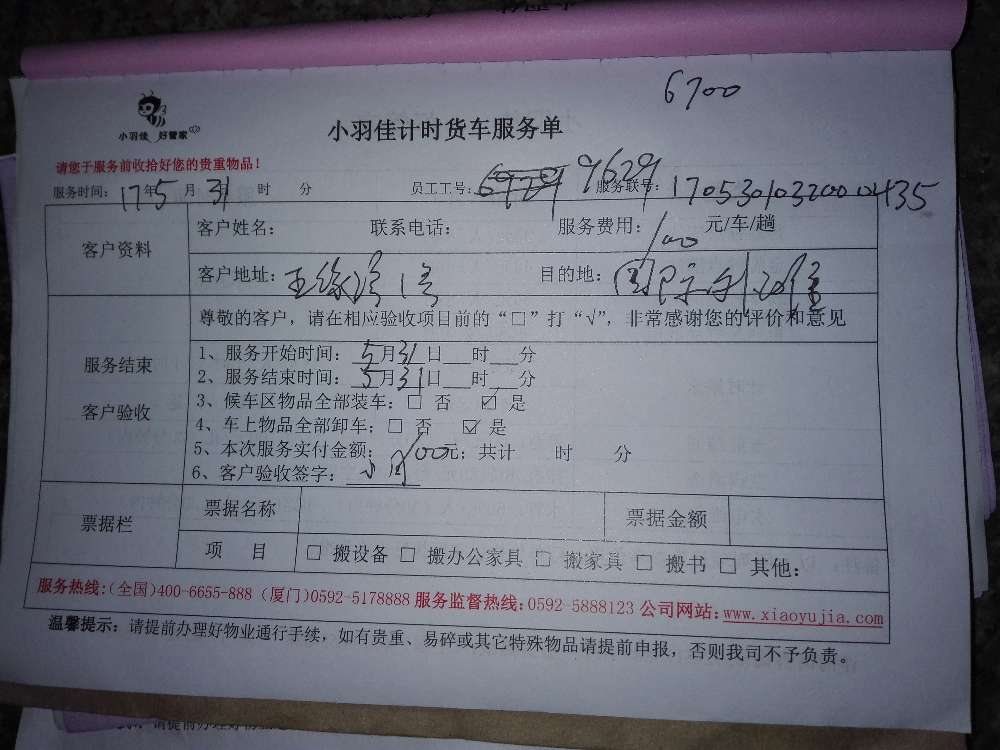 6700
小羽佳 好管家
小羽佳计时货车服务单
请您于服务前收拾好您的贵重物品！
服务时间：17年5月31 时 分 员工工号： 9629 服务联号：
客户资料 客户姓名： 联系电话： 服务费用：100 元/车/趟
客户地址： 目的地：
尊敬的客户，请在相应验收项目前的“□”打“√”，非常感谢您的评价和意见
服务结束
客户验收
1、服务开始时间：5月31日___时___分
2、服务结束时间：5月31日___时___分
3、候车区物品全部装车：□ 否 ☑ 是
4、车上物品全部卸车：□ 否 ☑ 是
5、本次服务实付金额：100元；共计 时 分
6、客户验收签字：
票据栏 票据名称 票据金额
项 目 □ 搬设备 □ 搬办公家具 □ 搬家具 □ 搬书 □ 其他：
服务热线：(全国)400-6655-888 (厦门)0592-5178888 服务监督热线：0592-5888123 公司网站：www.xiaoyujia.com
温馨提示：请提前办理好物业通行手续，如有贵重、易碎或其它特殊物品请提前申报，否则我司不予负责。